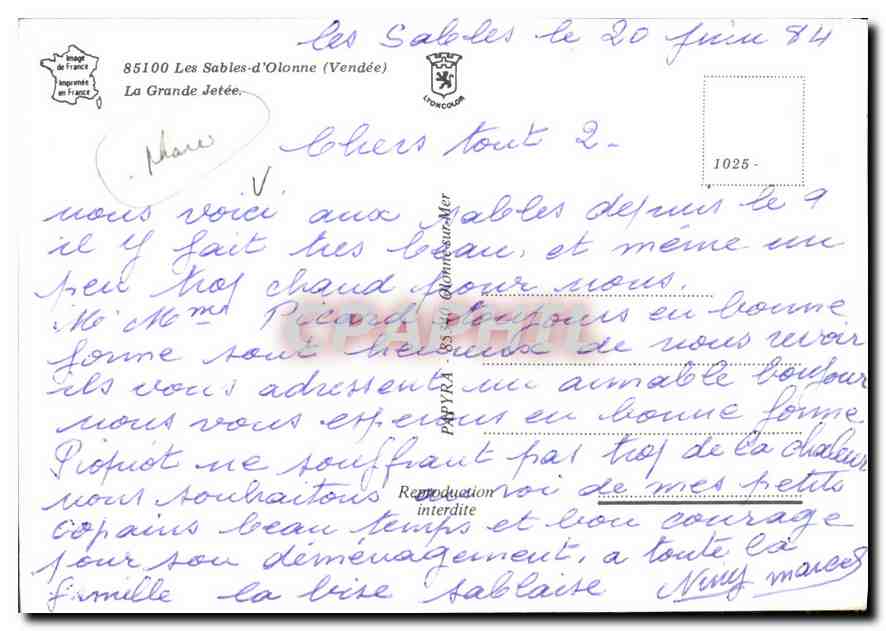 les Sables le 20 juin 84
Image
de France
Imprimée
en France
85100 Les Sables-d'Olonne (Vendée)
La Grande Jetée.
LYONCOLOR
1025 -
phare
Chers tout 2 -
nous voici aux sables depuis le 9
il y fait tres beau, et même un
peu trop chaud pour nous.
Mr Mme Picard toujours en bonne
forme sont heureux de nous revoir
ils vous adressent un aimable bonjour
nous vous esperons en bonne forme
ne souffrant pas trop de la chaleur
nous souhaitons au roi de mes petits
copains beau temps et bon courage
pour son déménagement, a toute la
famille la bise sablaise Niny Marcel
PAPYRA - 85340 Olonne-sur-Mer
Reproduction
interdite
CPAPHIL